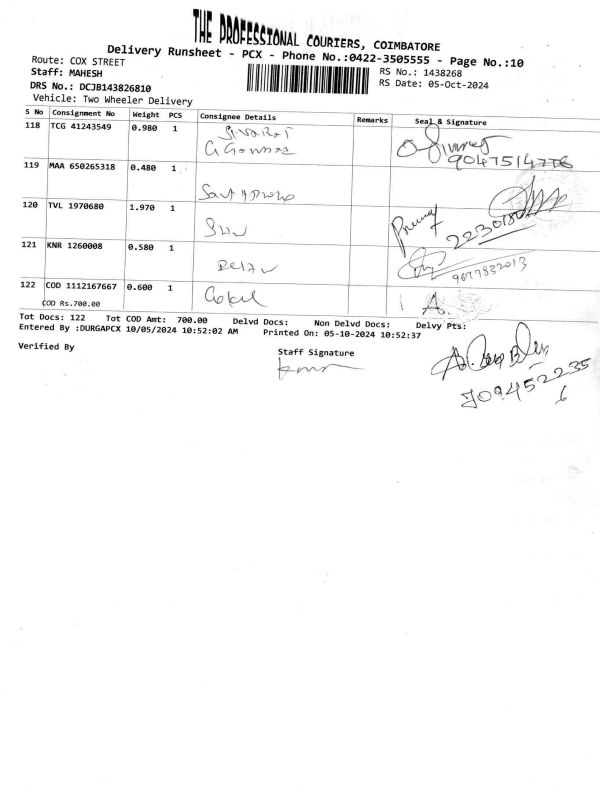 THE PROFESSIONAL COURIERS, COIMBATORE
Delivery Runsheet - PCX - Phone No.:0422-3505555 - Page No.:10
Route: COX STREET
RS No.: 1438268
Staff: MAHESH
RS Date: 05-Oct-2024
DRS No.: DCJB143826810
Vehicle: Two Wheeler Delivery
S No Consignment No Weight PCS Consignee Details Remarks Seal & Signature
118 TCG 41243549 0.980 1
9047514778
119 MAA 650265318 0.480 1
120 TVL 1970680 1.970 1
121 KNR 1260008 0.580 1
9677832013
122 COD 1112167667 0.600 1 Gokul
COD Rs.700.00
Tot Docs: 122 Tot COD Amt: 700.00 Delvd Docs: Non Delvd Docs: Delvy Pts:
Entered By :DURGAPCX 10/05/2024 10:52:02 AM Printed On: 05-10-2024 10:52:37
Verified By
Staff Signature